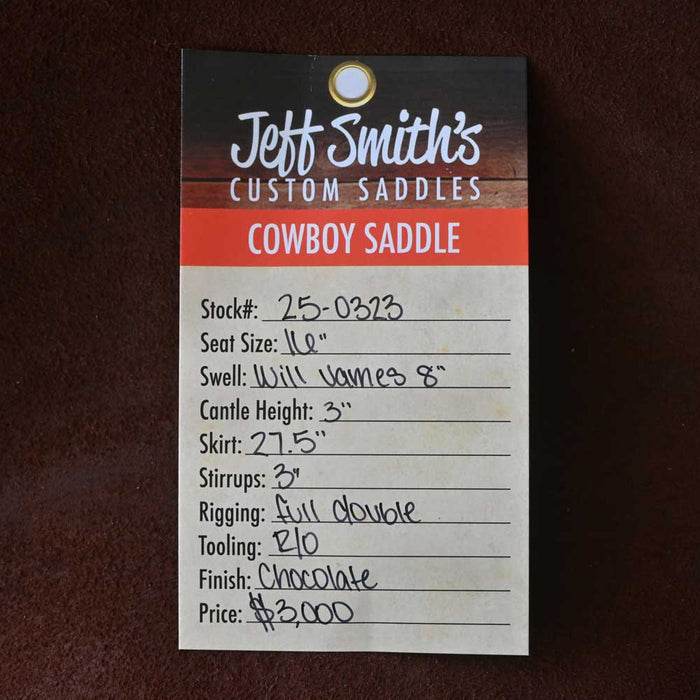 Jeff Smith's
CUSTOM SADDLES
COWBOY SADDLE
Stock#: 25-0323
Seat Size: 16"
Swell: Will James 8"
Cantle Height: 3"
Skirt: 27.5"
Stirrups: 3"
Rigging: full double
Tooling: R/O
Finish: Chocolate
Price: $3,000